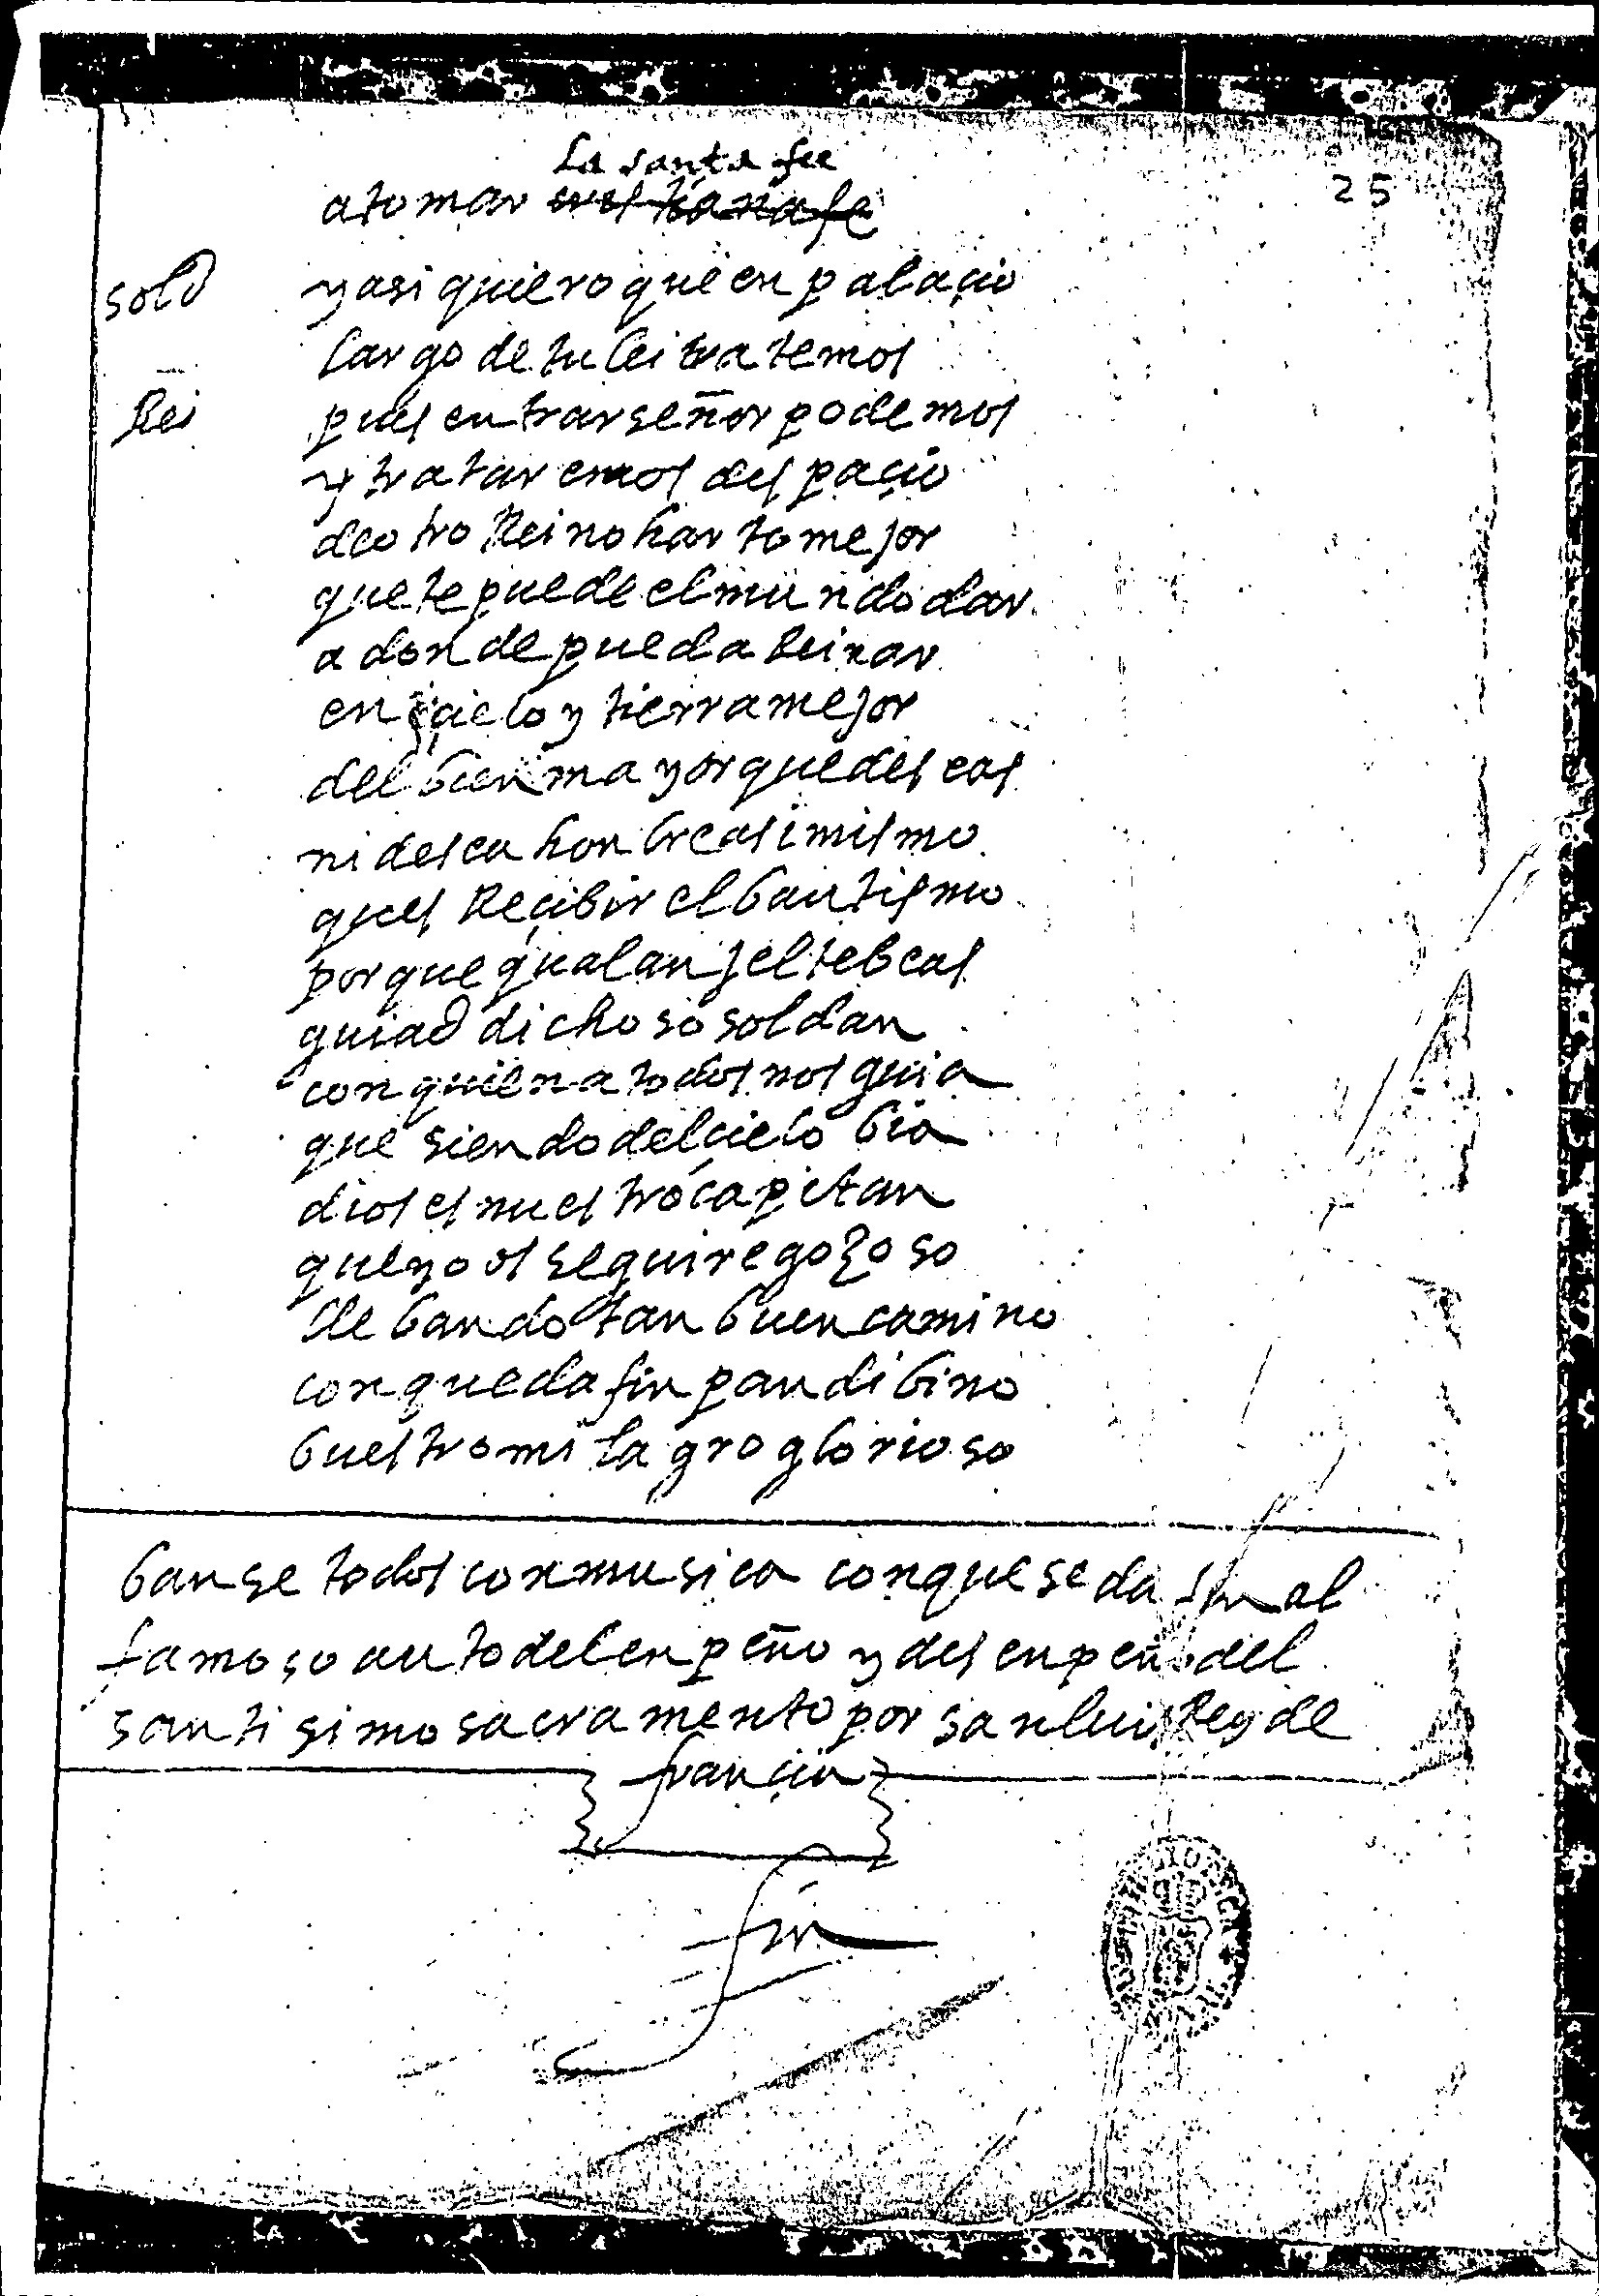 25
la santa fee
a tomar cristiana fe
sold y asi quiero que en palaçio
largo de tu lei tratemos
Rei pues entrar señor podemos
y trataremos despaçio
de otro Reino harto mejor
que te puede el mundo dar
a donde pueda Reinar
en çielo y tierra mejor
del bien mayor que deseas
ni desea honbre asi mismo
ques Reçibir el bautismo
porque qual anjel te beas
guiad dichoso soldan
con quien a todos nos guia
que siendo del çielo bia
dios es nuestro capitan
que yo os seguire gozoso
llebando tan buen camino
con que da fin pan dibino
buestro milagro glorioso
banse todos con musica con que se da fin al
famoso auto del enpeño y desenpeño del
santisimo sacramento por san luis Rey de
françia
fin